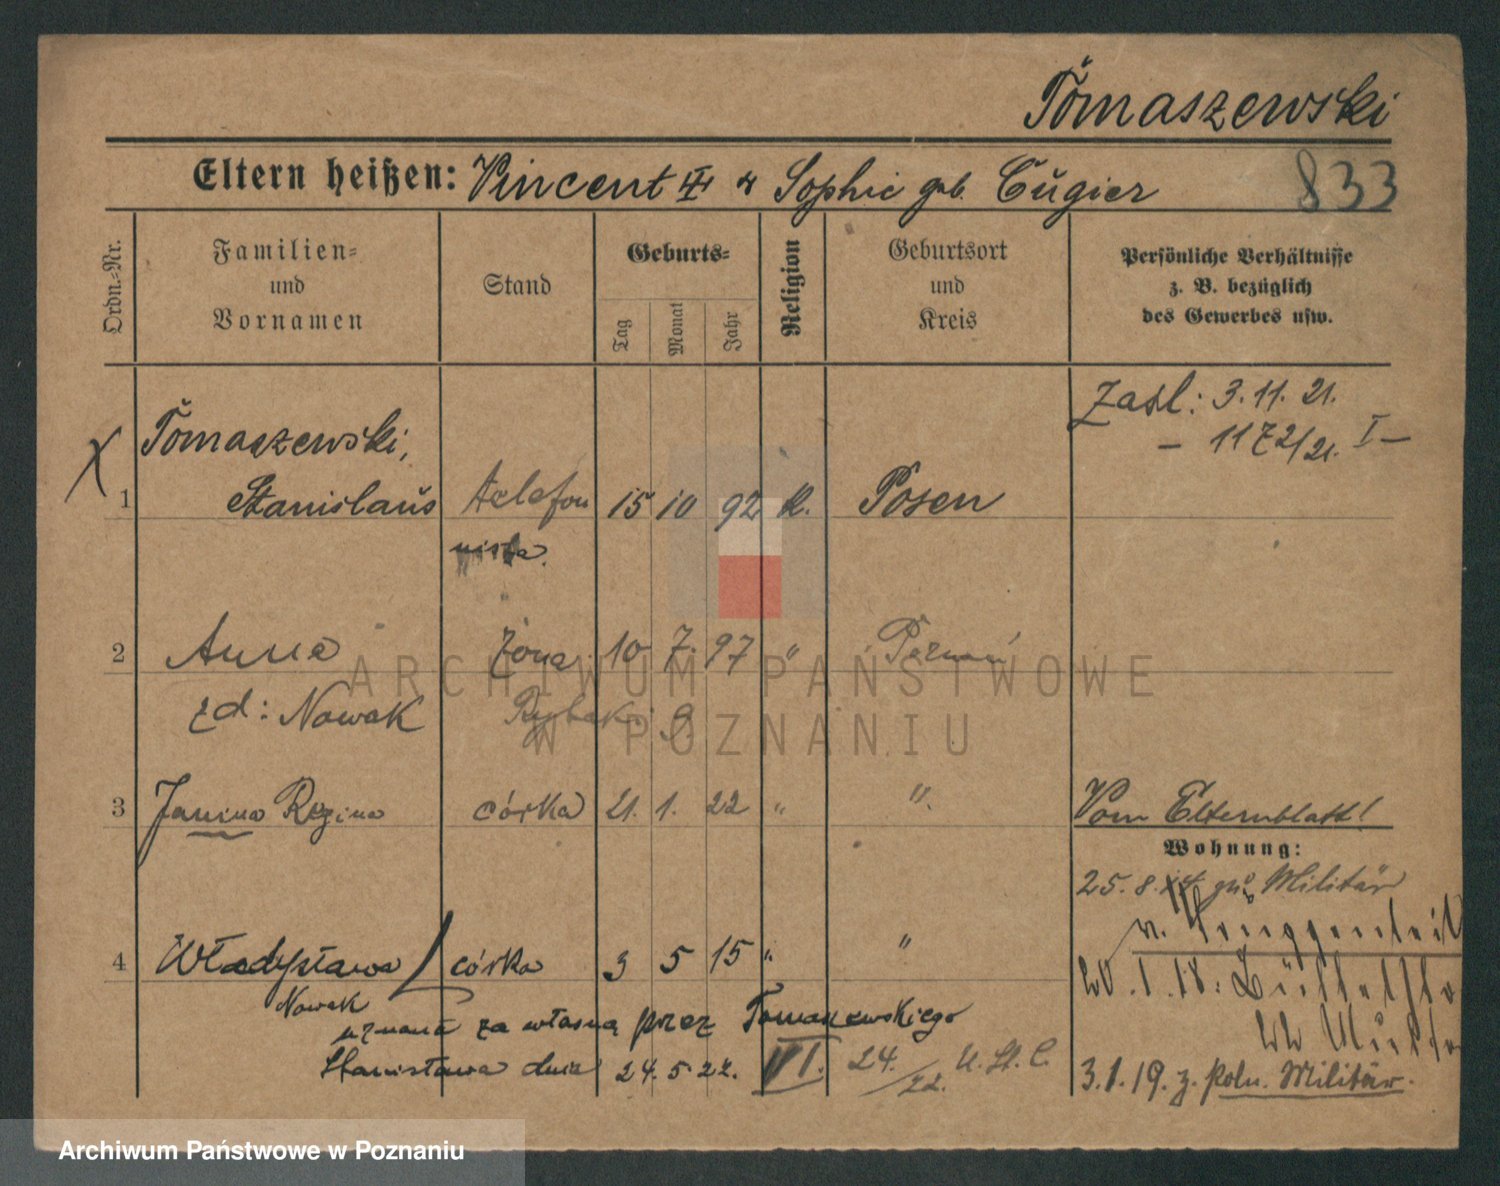 Tomaszewski
Eltern heißen: Vincent III u Sophie geb. Cugier 833
Ordn.-Nr.
Familien-
und
Vornamen
Stand
Geburts-
Tag
Monat
Jahr
Religion
Geburtsort
und
Kreis
Persönliche Verhältnisse
z. B. bezüglich
des Gewerbes usw.
Zasl: 3.11.21.
- 1172/21. I -
Tomaszewski,
1 Stanislaus Telefon 15 10 92 K. Posen
nista.
2 Anna żona 10 7. 97 " Poznań
zd: Nowak Rybaki
3 Janina Regina córka 21. 1. 22 " ".
Vom Elternblatt!
Wohnung:
25.8.14 zum Militär
4 Władysława córka 3 5 15 " "
20.1.18:
Nowak
uznana za własną przez Tomaszewskiego
Stanisława dnia 24.5.22. VI. 24./22. U. St. C.
3.1.19. z. poln. Militär.
ARCHIWUM PAŃSTWOWE
W POZNANIU
Archiwum Państwowe w Poznaniu